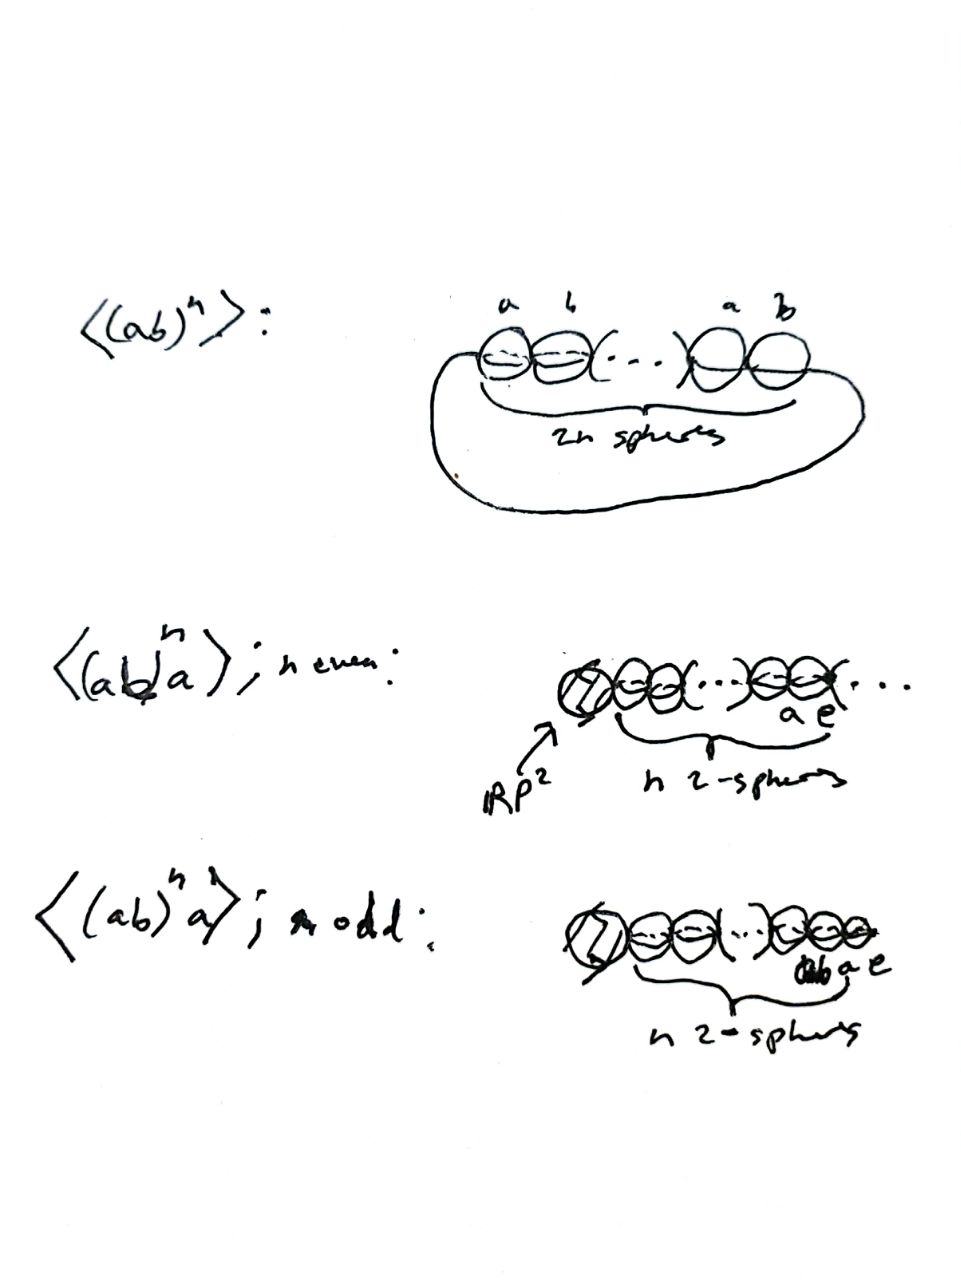 a b a b
⟨(ab)ⁿ⟩:
(...)
2n spheres
⟨(ab)ⁿa⟩; n even:
(...) (...
a e
n 2-spheres
RP²
⟨(ab)ⁿa⟩; n odd:
(...)
b a e
n 2-spheres